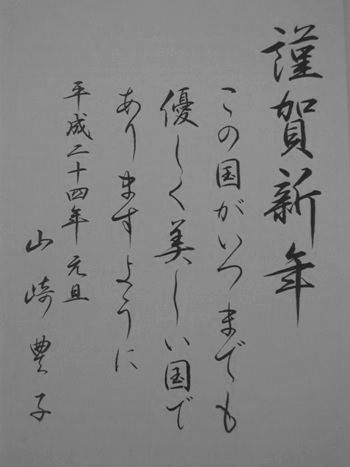 謹賀新年
この国がいつまでも
優しく美しい国で
ありますように
平成二十四年 元旦
山崎豊子